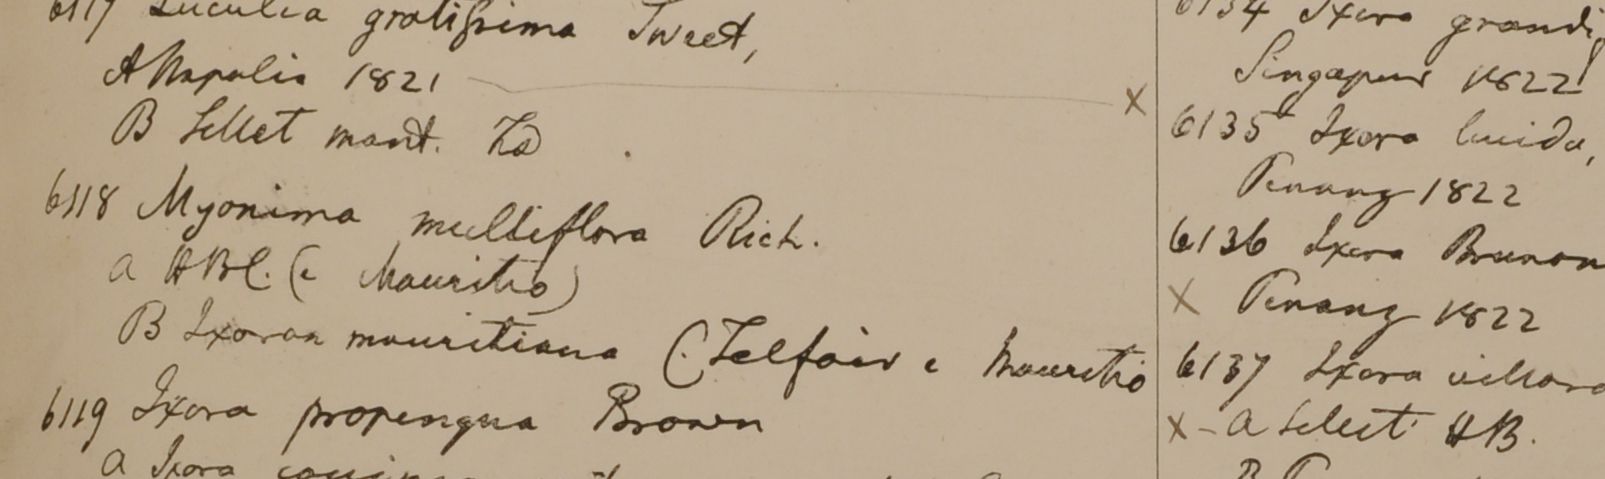 6117 Luculia gratissima Sweet,
A Napalia 1821
B Sillet mont.
6118 Myonima multiflora Rich.
a HBC. (e Mauritio)
B Ixoran mauritiana (Telfair e Mauritio
6119 Ixora propinqua Brown
a Ixora
6134 Ixora grandif
Singapur 1822
6135 Ixora lucida,
Penang 1822
6136 Ixora Brunon
X Penang 1822
6137 Ixora villosa
X - a Sillet HB.